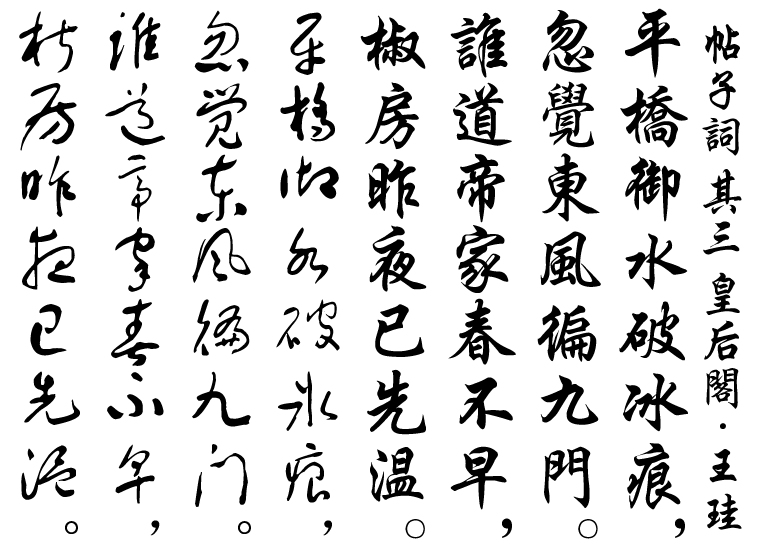 帖子詞 其三 皇后閣·王珪
平橋御水破冰痕，
忽覺東風徧九門。
誰道帝家春不早，
椒房昨夜已先温。
平橋御水破冰痕，
忽覺东風徧九门。
誰道帝家春不早，
椒房昨夜已先温。